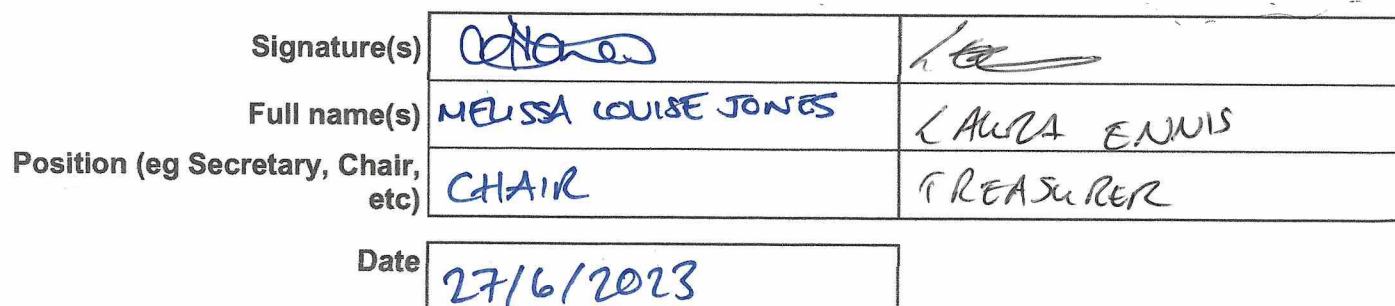 Signature(s)
Full name(s) MELISSA LOUISE JONES LAURA ENNIS
Position (eg Secretary, Chair,
etc) CHAIR TREASURER
Date 27/6/2023